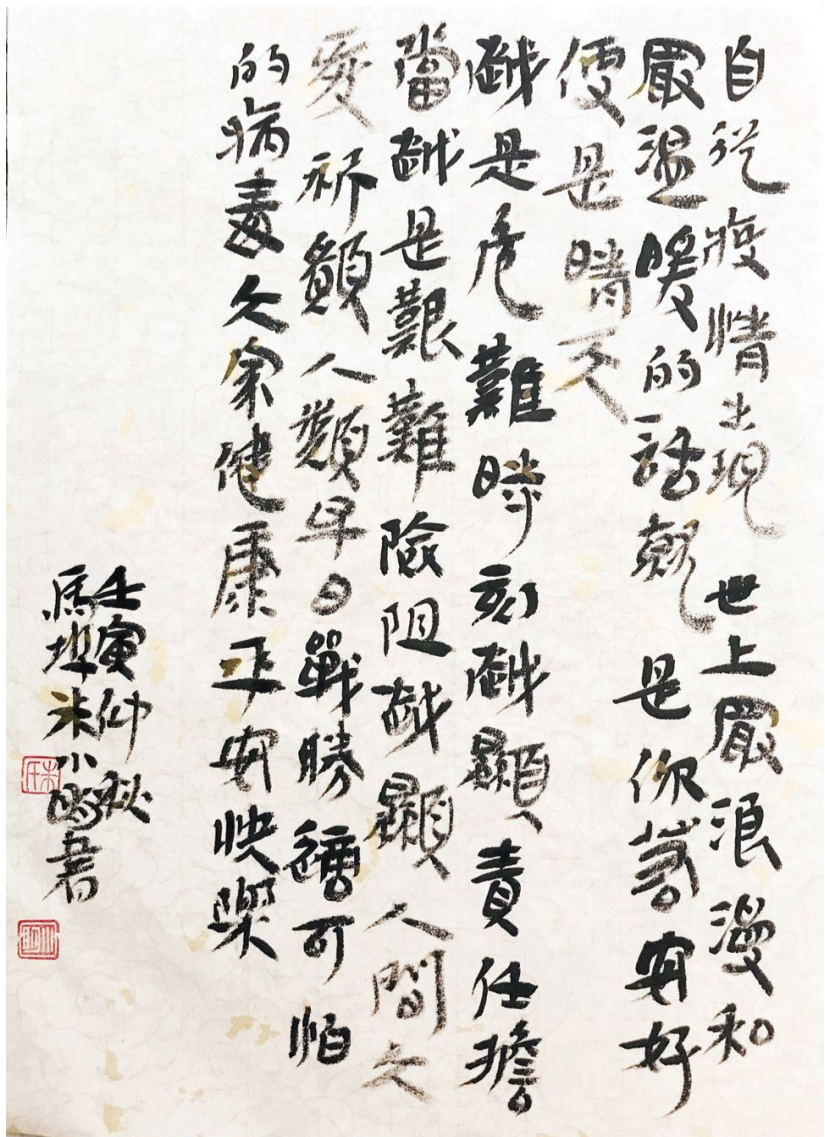 自從疫情出現世上最浪漫和
最温暖的話就是你若安好
便是晴天
越是危難時刻越顯責任擔
當越是艱難險阻越顯人間大
愛祈願人類早日戰勝這可怕
的病毒大家健康平安快樂
壬寅仲秋
馬埠朱小明書
朱氏